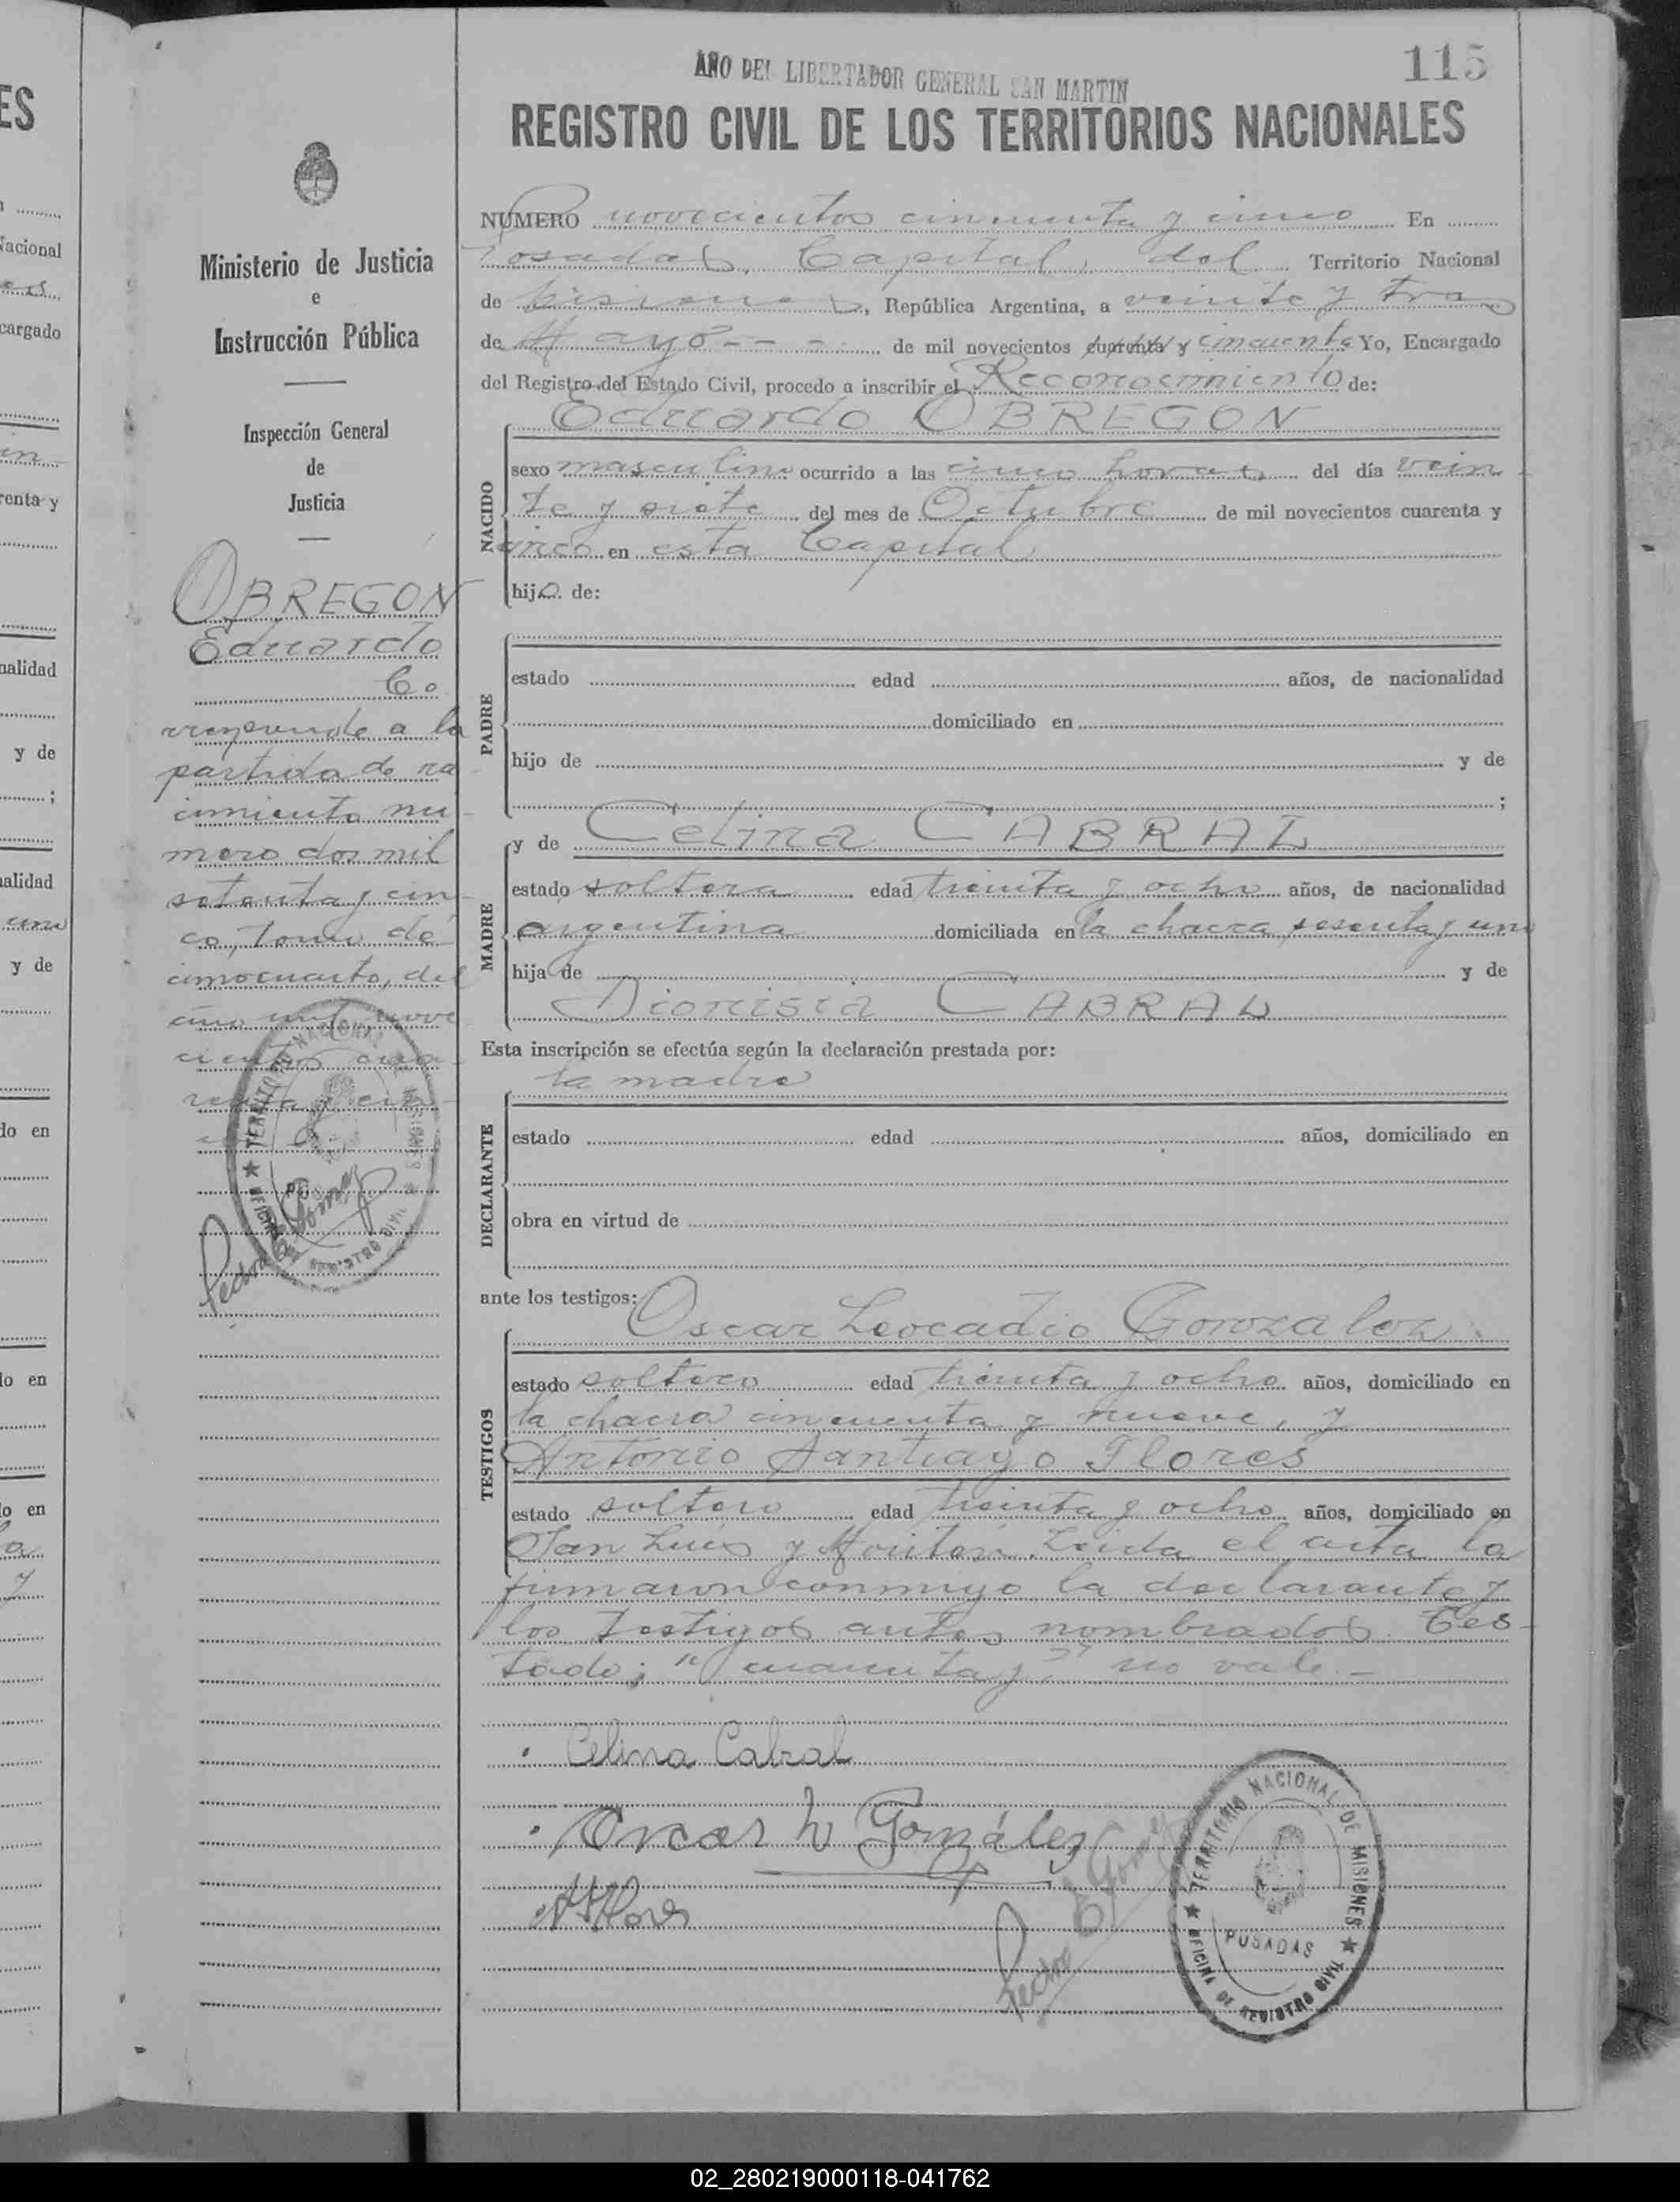 115
AÑO DEL LIBERTADOR GENERAL SAN MARTIN
REGISTRO CIVIL DE LOS TERRITORIOS NACIONALES
Ministerio de Justicia
e
Instrucción Pública
Inspección General
de
Justicia
OBREGON
Eduardo
Co
rresponde a la
partida de na
cimiento nu-
mero dos mil
setenta y cin-
co, tomo dé
cimocuarto, del
año mil nove
cientos cua-
renta y cin-
co
NUMERO novecientos cincuenta y cinco En
Posadas, Capital del Territorio Nacional
de Misiones, República Argentina, a veinte y tres
de Mayo - - - de mil novecientos cuarenta y cincuenta Yo, Encargado
del Registro del Estado Civil, procedo a inscribir el Reconocimiento de:
Eduardo OBREGON
NACIDO
sexo masculino ocurrido a las cinco horas del día vein-
te y siete del mes de Octubre de mil novecientos cuarenta y
cinco en esta Capital
hijo de:
PADRE
estado edad años, de nacionalidad
domiciliado en
hijo de y de
;
MADRE
y de Celina CABRAL
estado soltera edad treinta y ocho años, de nacionalidad
argentina domiciliada en la chacra sesenta y uno
hija de y de
Dionisia CABRAL
Esta inscripción se efectúa según la declaración prestada por:
la madre
DECLARANTE
estado edad años, domiciliado en
obra en virtud de
ante los testigos:
TESTIGOS
Oscar Leocadio Gonzalez
estado soltero edad treinta y ocho años, domiciliado en
la chacra cincuenta y nueve, y
Antonio Santiago Flores
estado soltero edad treinta y ocho años, domiciliado en
San Luis y . Leida el acta la
firmaron conmigo la declarante y
los testigos antes nombrados. Tes-
tado: "cuarenta y" no vale.-
Celina Cabral
Oscar L González
A S Flores
Pedro E Gomez
TERRITORIO NACIONAL DE MISIONES
POSADAS
OFICINA DE REGISTRO CIVIL
02_280219000118-041762